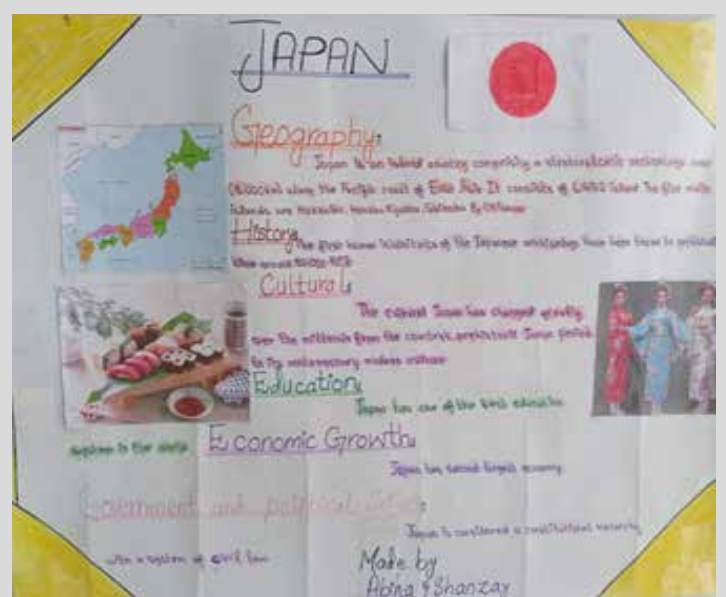 JAPAN
Geography:
Japan is an island country comprising a stratovolcanic archipelago over
along the Pacific coast of East Asia It consists of 6,852 island The five main
islands are Hokkaido, Honshu, Kyushu, Shikoku & Okinawa
History
The first human of the Japanese archipelago have been traced to prehistoric
times around
Cultural:
The of Japan has changed greatly
over the millennia from the country's prehistoric Jomon period
to its contemporary modern culture
Education:
Japan has one of the best education
system in the world
Economic Growth:
Japan has second largest economy
Government and political
Japan is considered a constitutional
with a system of civil law
Made by
& Shanzay